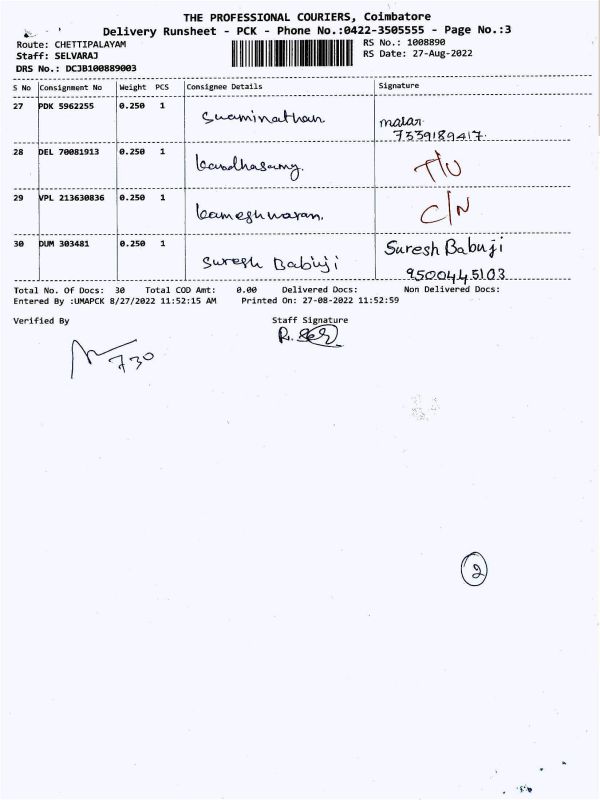 THE PROFESSIONAL COURIERS, Coimbatore
Delivery Runsheet - PCK - Phone No.:0422-3505555 - Page No.:3
Route: CHETTIPALAYAM RS No.: 1008890
Staff: SELVARAJ RS Date: 27-Aug-2022
DRS No.: DCJB100889003
S No Consignment No Weight PCS Consignee Details Signature
27 PDK 5962255 0.250 1 Swaminathan malar
7339189417
28 DEL 70081913 0.250 1 kandhasamy. T/U
29 VPL 213630836 0.250 1 kameshwaran. C/N
30 DUM 303481 0.250 1 Suresh Babuji Suresh Babuji
9500445103
Total No. Of Docs: 30 Total COD Amt: 0.00 Delivered Docs: Non Delivered Docs:
Entered By :UMAPCK 8/27/2022 11:52:15 AM Printed On: 27-08-2022 11:52:59
Verified By Staff Signature
R.
730
2